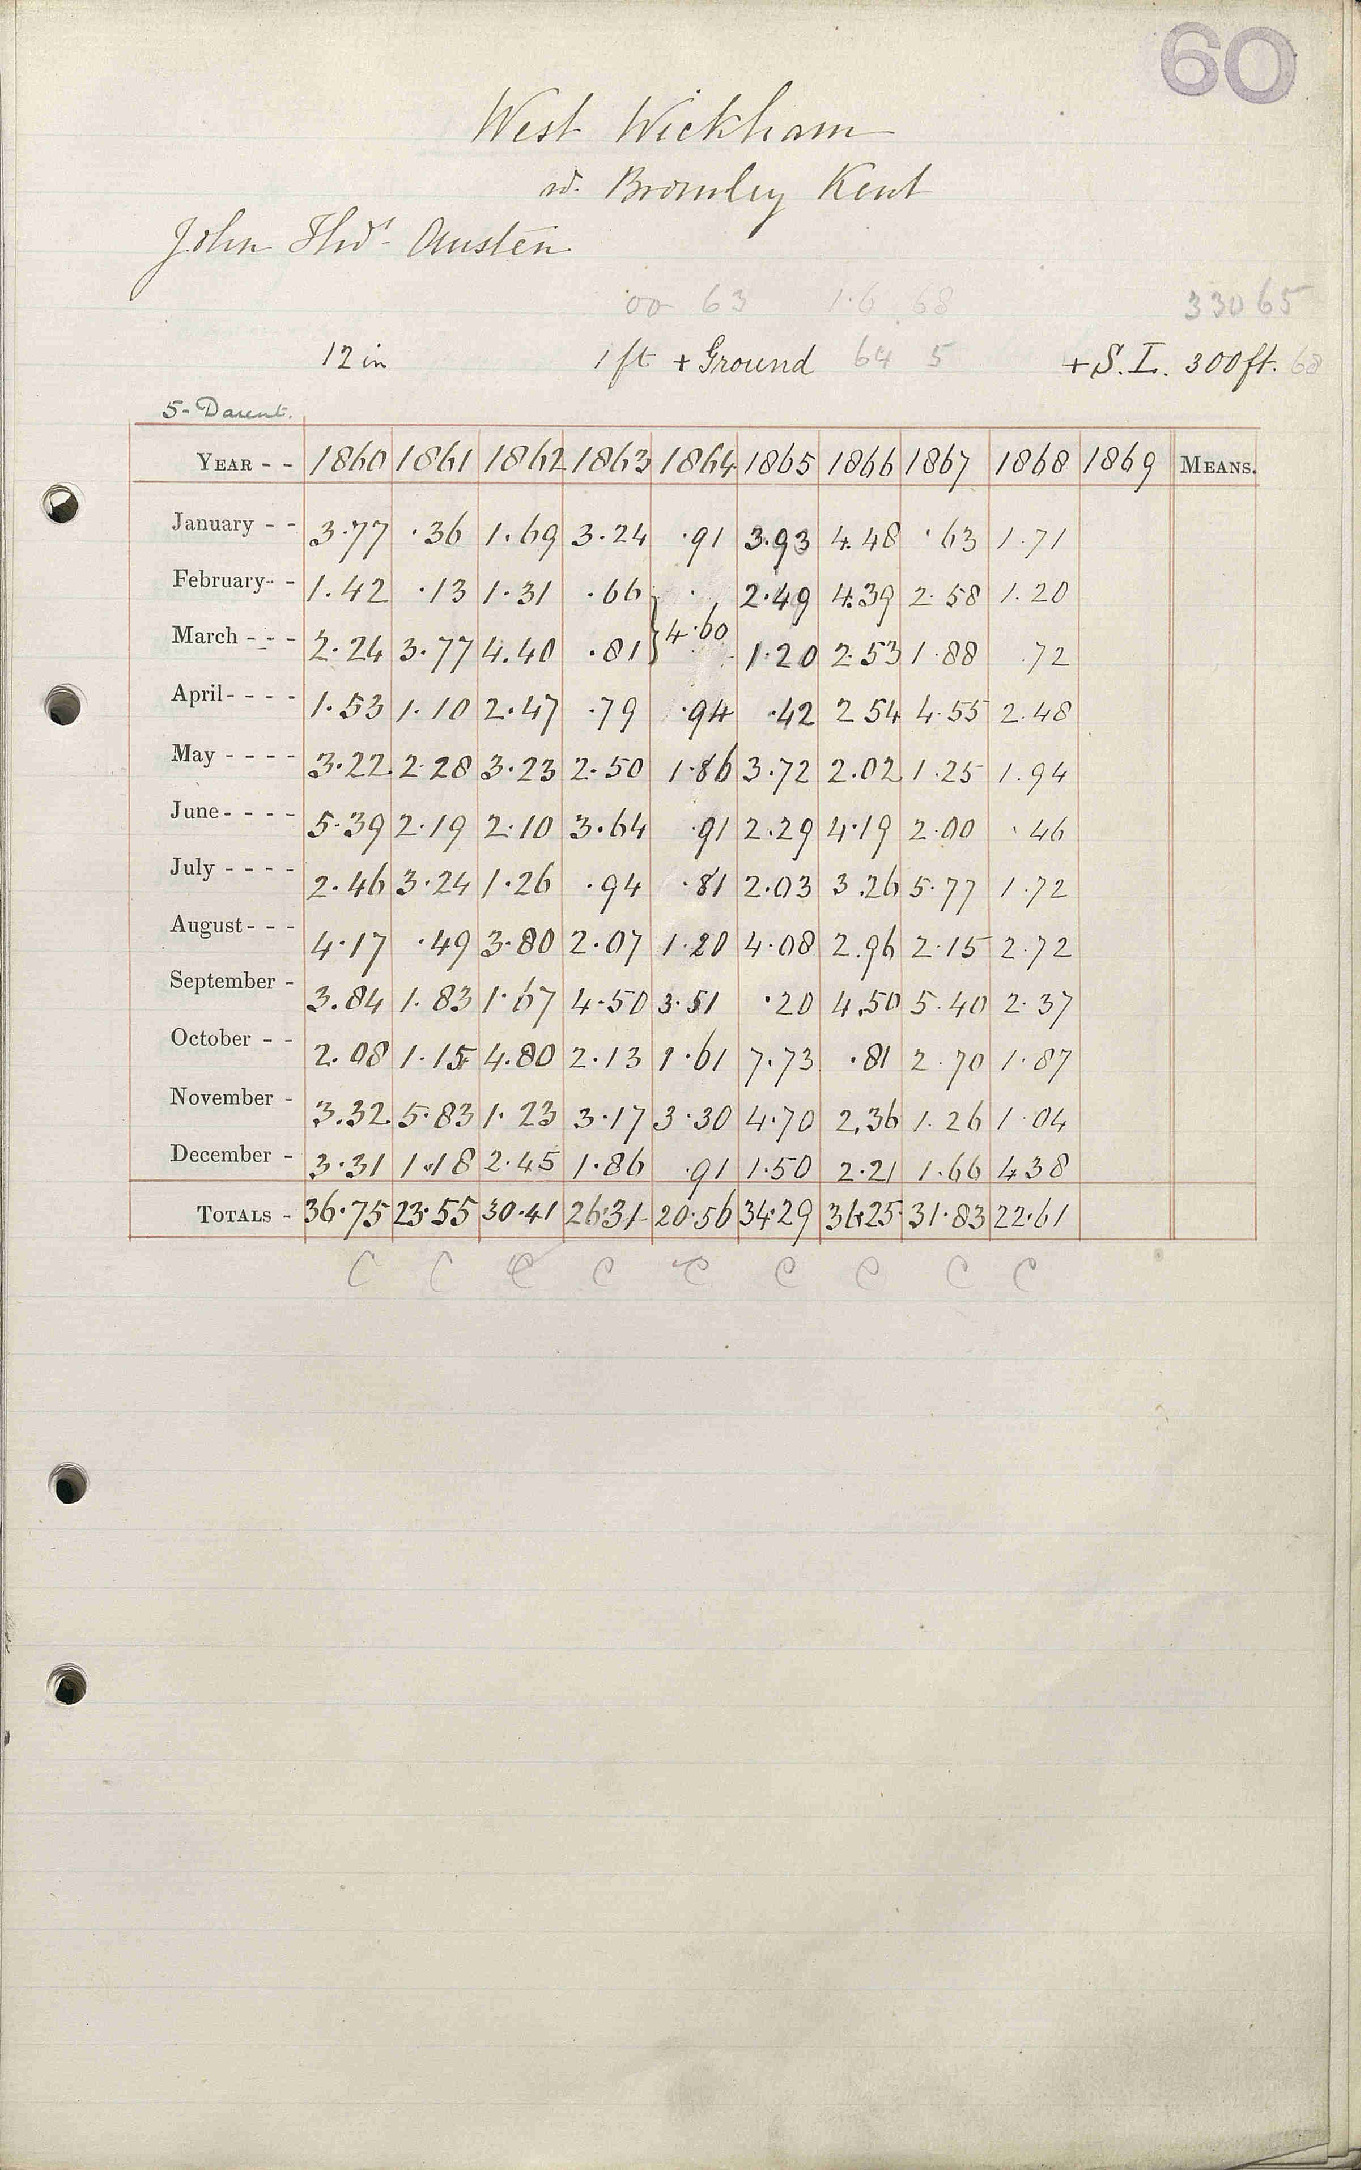 60
West Wickham
nr. Bromley Kent
John Thos Austen
00 63 1.6 .68 33065
12 in 1 ft + Ground 64 5 + S. L. 300 ft. 68
5-Darent.
YEAR - - 1860 1861 1862 1863 1864 1865 1866 1867 1868 1869 MEANS.
January - - 3.77 .36 1.69 3.24 .91 3.93 4.48 .63 1.71
February- - 1.42 .13 1.31 .66 2.49 4.39 2.58 1.20
March - - - 2.24 3.77 4.40 .81 } 4.60 1.20 2.53 1.88 .72
April- - - - 1.53 1.10 2.47 .79 .94 .42 2.54 4.55 2.48
May - - - - 3.22 2.28 3.23 2.50 1.86 3.72 2.02 1.25 1.94
June- - - - 5.39 2.19 2.10 3.64 .91 2.29 4.19 2.00 .46
July - - - - 2.46 3.24 1.26 .94 .81 2.03 3.26 5.77 1.72
August- - - 4.17 .49 3.80 2.07 1.20 4.08 2.96 2.15 2.72
September - 3.84 1.83 1.67 4.50 3.51 .20 4.50 5.40 2.37
October - - 2.08 1.15 4.80 2.13 1.61 7.73 .81 2.70 1.87
November - 3.32 5.83 1.23 3.17 3.30 4.70 2.36 1.26 1.04
December - 3.31 1.18 2.45 1.86 .91 1.50 2.21 1.66 4.38
TOTALS - 36.75 23.55 30.41 26.31 20.56 34.29 36.25 31.83 22.61
C C C C C C C C C